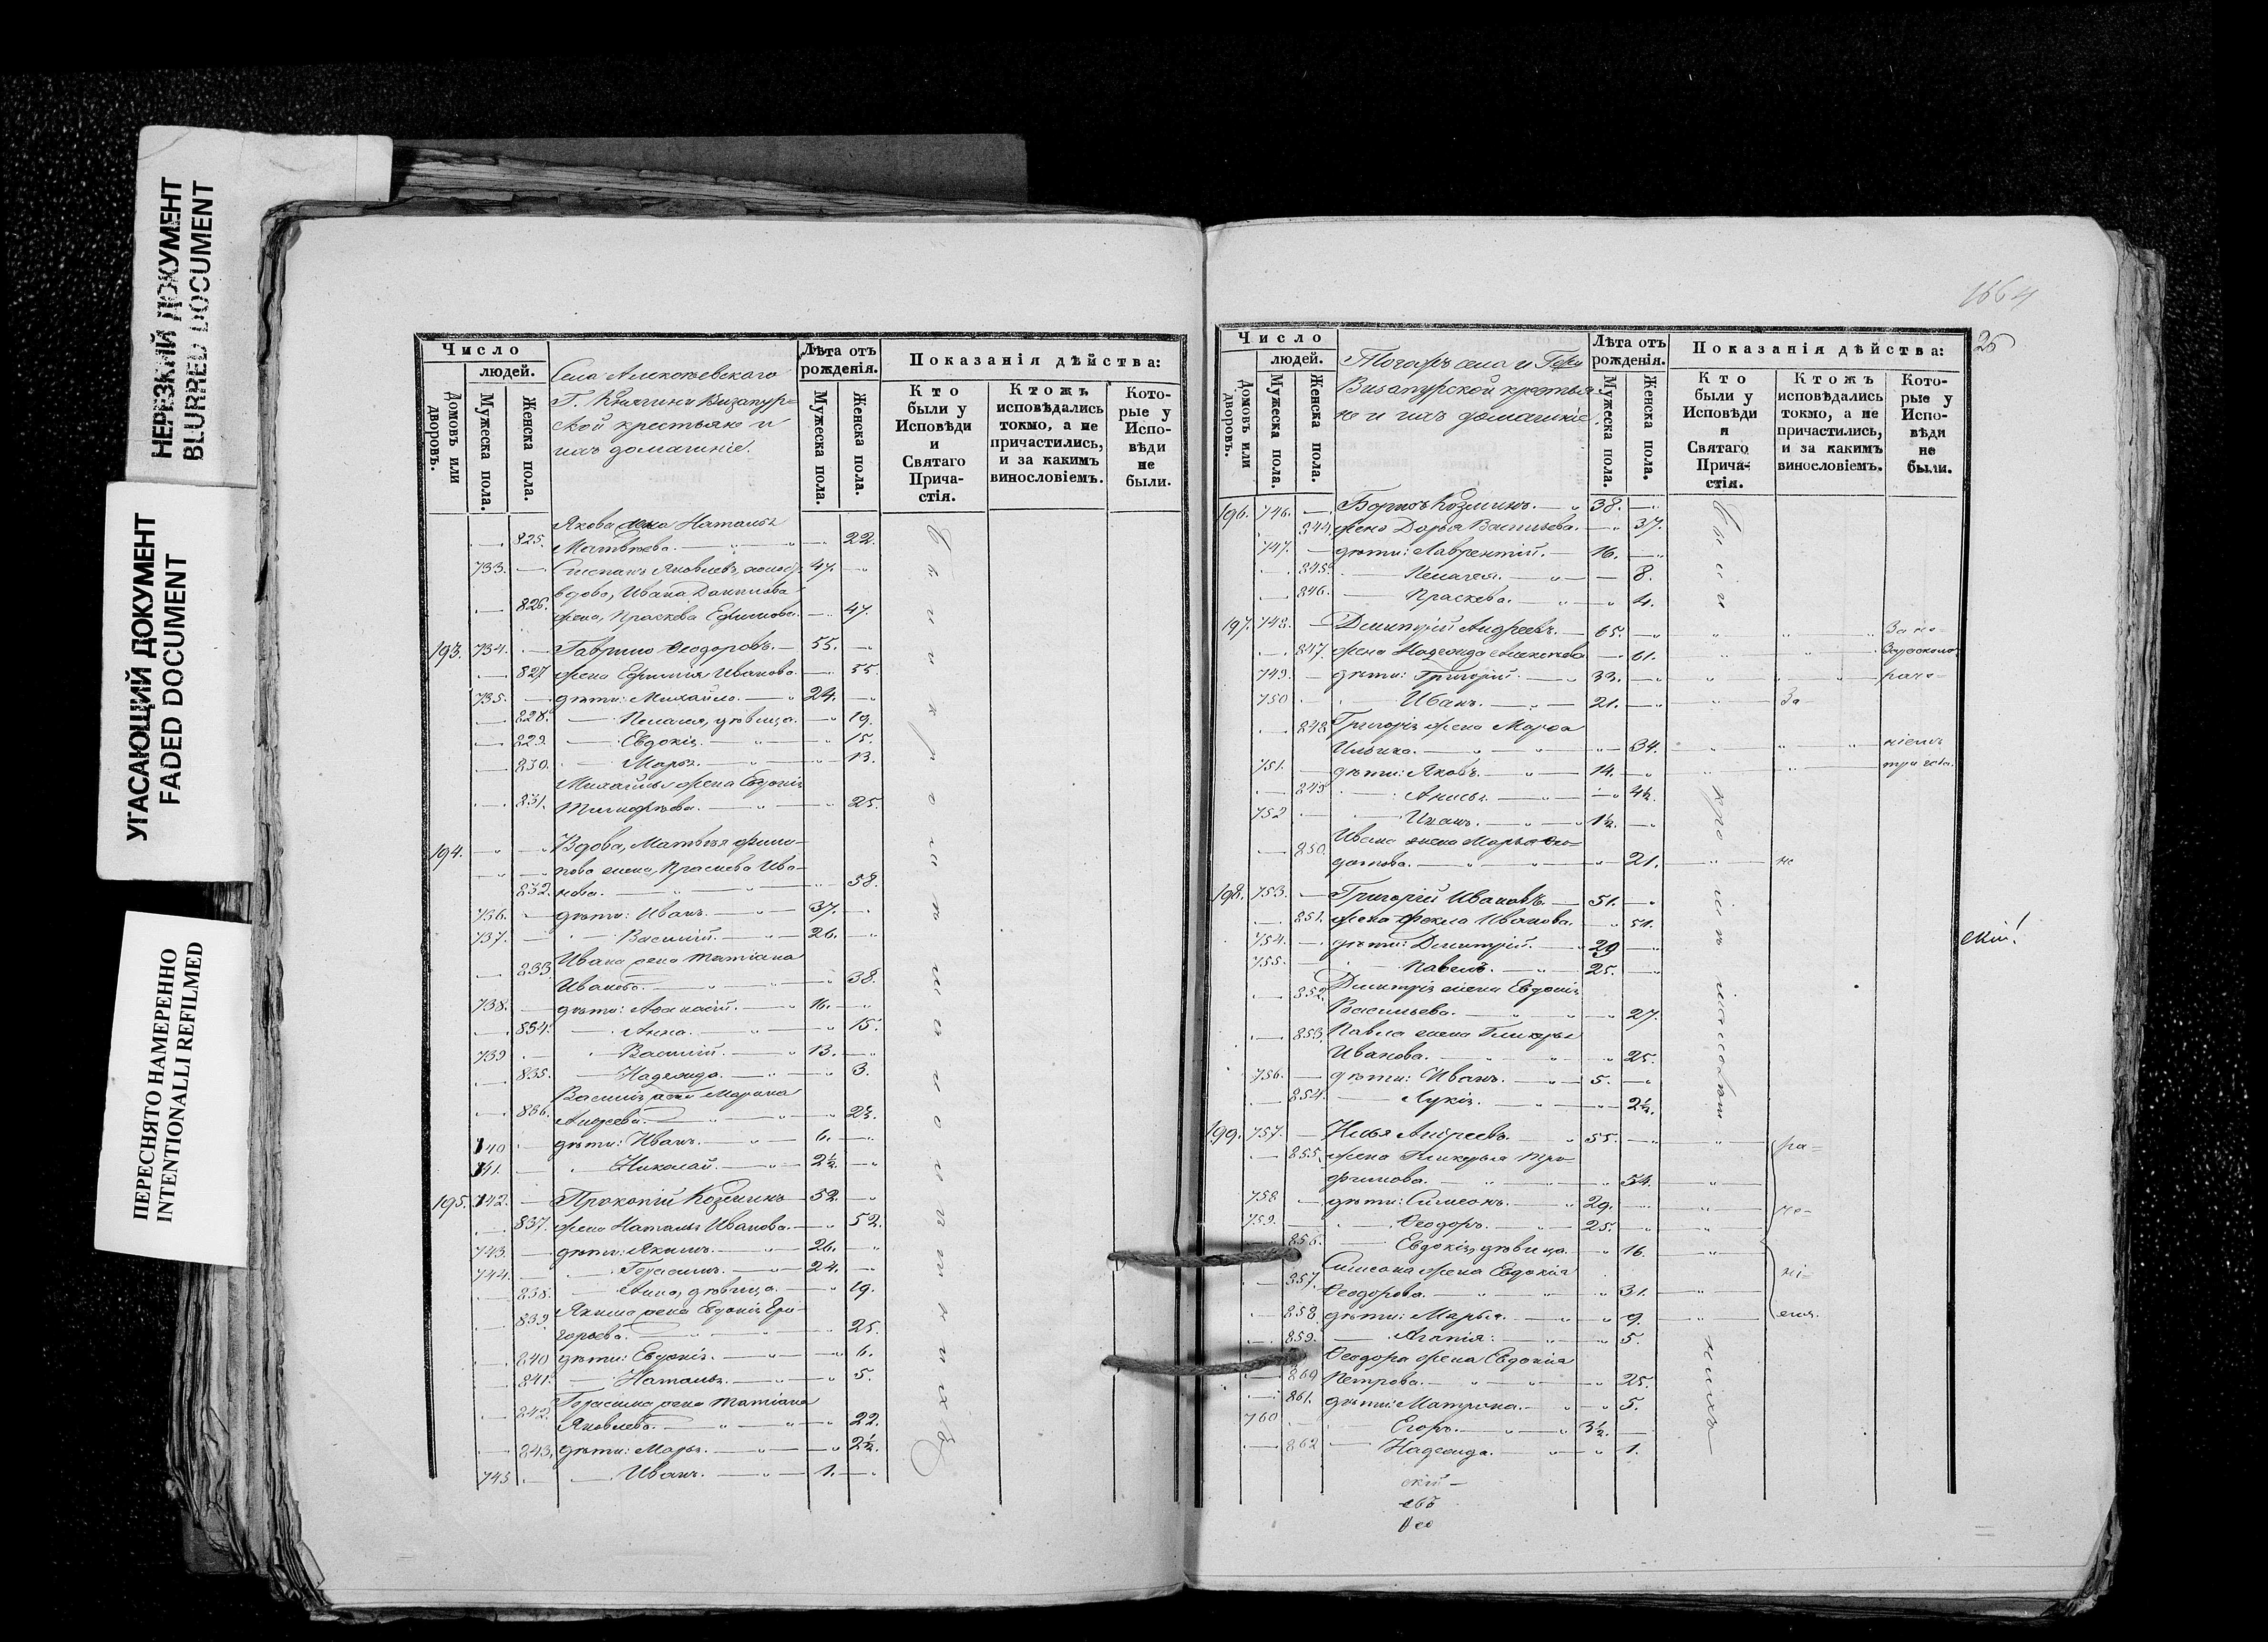 НЕРЕЗКИЙ ДОКУМЕНТ
BLURRED DOCUMENT
УГАСАЮЩИЙ ДОКУМЕНТ
FADED DOCUMENT
ПЕРЕСНЯТО НАМЕРЕННО
INTENTIONALLI REFILMED
Число
людей.
Домовъ или дворовъ.
Мужеска пола.
Женска пола.
Села
Г. Княгини Визапур=
ской крестьяне и
ихъ домашніе.
Лѣта отъ рожденія.
Мужеска пола.
Женска пола.
Показанія дѣйства:
Кто были у Исповѣди и Святаго Прича-стія.
Ктожъ исповѣдались токмо, а не причастились, и за какимъ винословіемъ.
Кото-рые у Испо-вѣди не были.
Якова жена Наталья
825. Матвѣева. 22.
733. Степанъ Яковлевъ, холост. 47.
вдова, Ивана Данилова
826. жена, Праскева Ефимова. 47.
193. 734. Гаврило Ѳеодоровъ. 55.
827 жена Ефимія Иванова. 55.
735. дѣти: Михайло. 24.
828. Пелагея, дѣвица. 19.
829. Евдокія. 15.
830. Марья. 13.
Михайлы жена Евдокія
831. Тимофѣева. 25.
194. Вдова, Матвѣя Фили-
пова жена, Праскева Ива-
832. нова. 58.
736. дѣти: Иванъ. 37.
737. Василій. 26.
833 Ивана жена Татіана
Иванова. 38.
738. дѣти: Аѳанасій. 16.
834. Анна. 15.
739 Василій. 13.
835. Надежда. 3.
Василія жена Марина
836. Андреева. 25.
740 дѣти: Иванъ. 6.
741. Николай. 2½.
195. 742. Прокопій Козминъ 52.
837. жена Наталья Иванова. 52.
743. дѣти: Якимъ. 26.
744. Герасимъ. 24.
838. Анна, дѣвица. 19.
839. Якима жена Евдокія Гри-
горьева. 25.
840 дѣти: Евдокія. 6.
841. Наталья. 5.
Герасима жена Татіана
842. Яковлева. 22.
843. дѣти: Марья. 2½.
745 Иванъ. 1.
1664
25
Число
людей.
Домовъ или дворовъ.
Мужеска пола.
Женска пола.
Тогожъ села и
Визапурской крестья-
не и ихъ домашніе
Лѣта отъ рожденія.
Мужеска пола.
Женска пола.
Показанія дѣйства:
Кто были у Исповѣди и Святаго Прича-стія.
Ктожъ исповѣдались токмо, а не причастились, и за какимъ винословіемъ.
Кото-рые у Испо-вѣди не были.
196. 746. Борисъ Козминъ. 38.
844. жена Дарья Васильева. 37.
747. дѣти: Лаврентій. 16.
845. Пелагея. 8.
846. Праскева. 4.
197. 748. Димитрій Андреевъ. 65.
847. жена Надежда 61.
749. дѣти: Григорій. 33.
750 Иванъ. 21. За-
848 Григорія жена Марѳа
Ильина. 34.
751. дѣти: Яковъ. 14.
849 Анисья. 4½.
752 Иванъ. 1½.
Ивана жена Марья Ѳео-
850. дотова. 21. не
198. 753. Григорій Ивановъ. 51.
851. жена Ѳекла Иванова. 51.
754. дѣти: Димитрій. 29
755. Павелъ. 25.
852. Димитрія жена Евдокія
Васильева. 27.
853. Павла жена Гликерья
Иванова. 25.
756. дѣти: Иванъ. 5.
854. Лукія. 2½.
199. 757. Илья Андреевъ. 55. ра=
855. жена Гликерья Тро-
фимова. 54.
758 дѣти: Симеонъ. 29. че-
759. Ѳеодоръ. 25.
856. Евдокія, дѣвица. 16.
Симеона жена Евдокія ні=
857. Ѳеодорова. 31.
858 дѣти: Марья. 9. емъ.
859. Агапія. 5.
Ѳеодора жена Евдокія
860 Петрова. 25.
861. дѣти: Матрона. 5.
760 Егоръ. 3½.
862 Надежда. 1.
скій
евъ